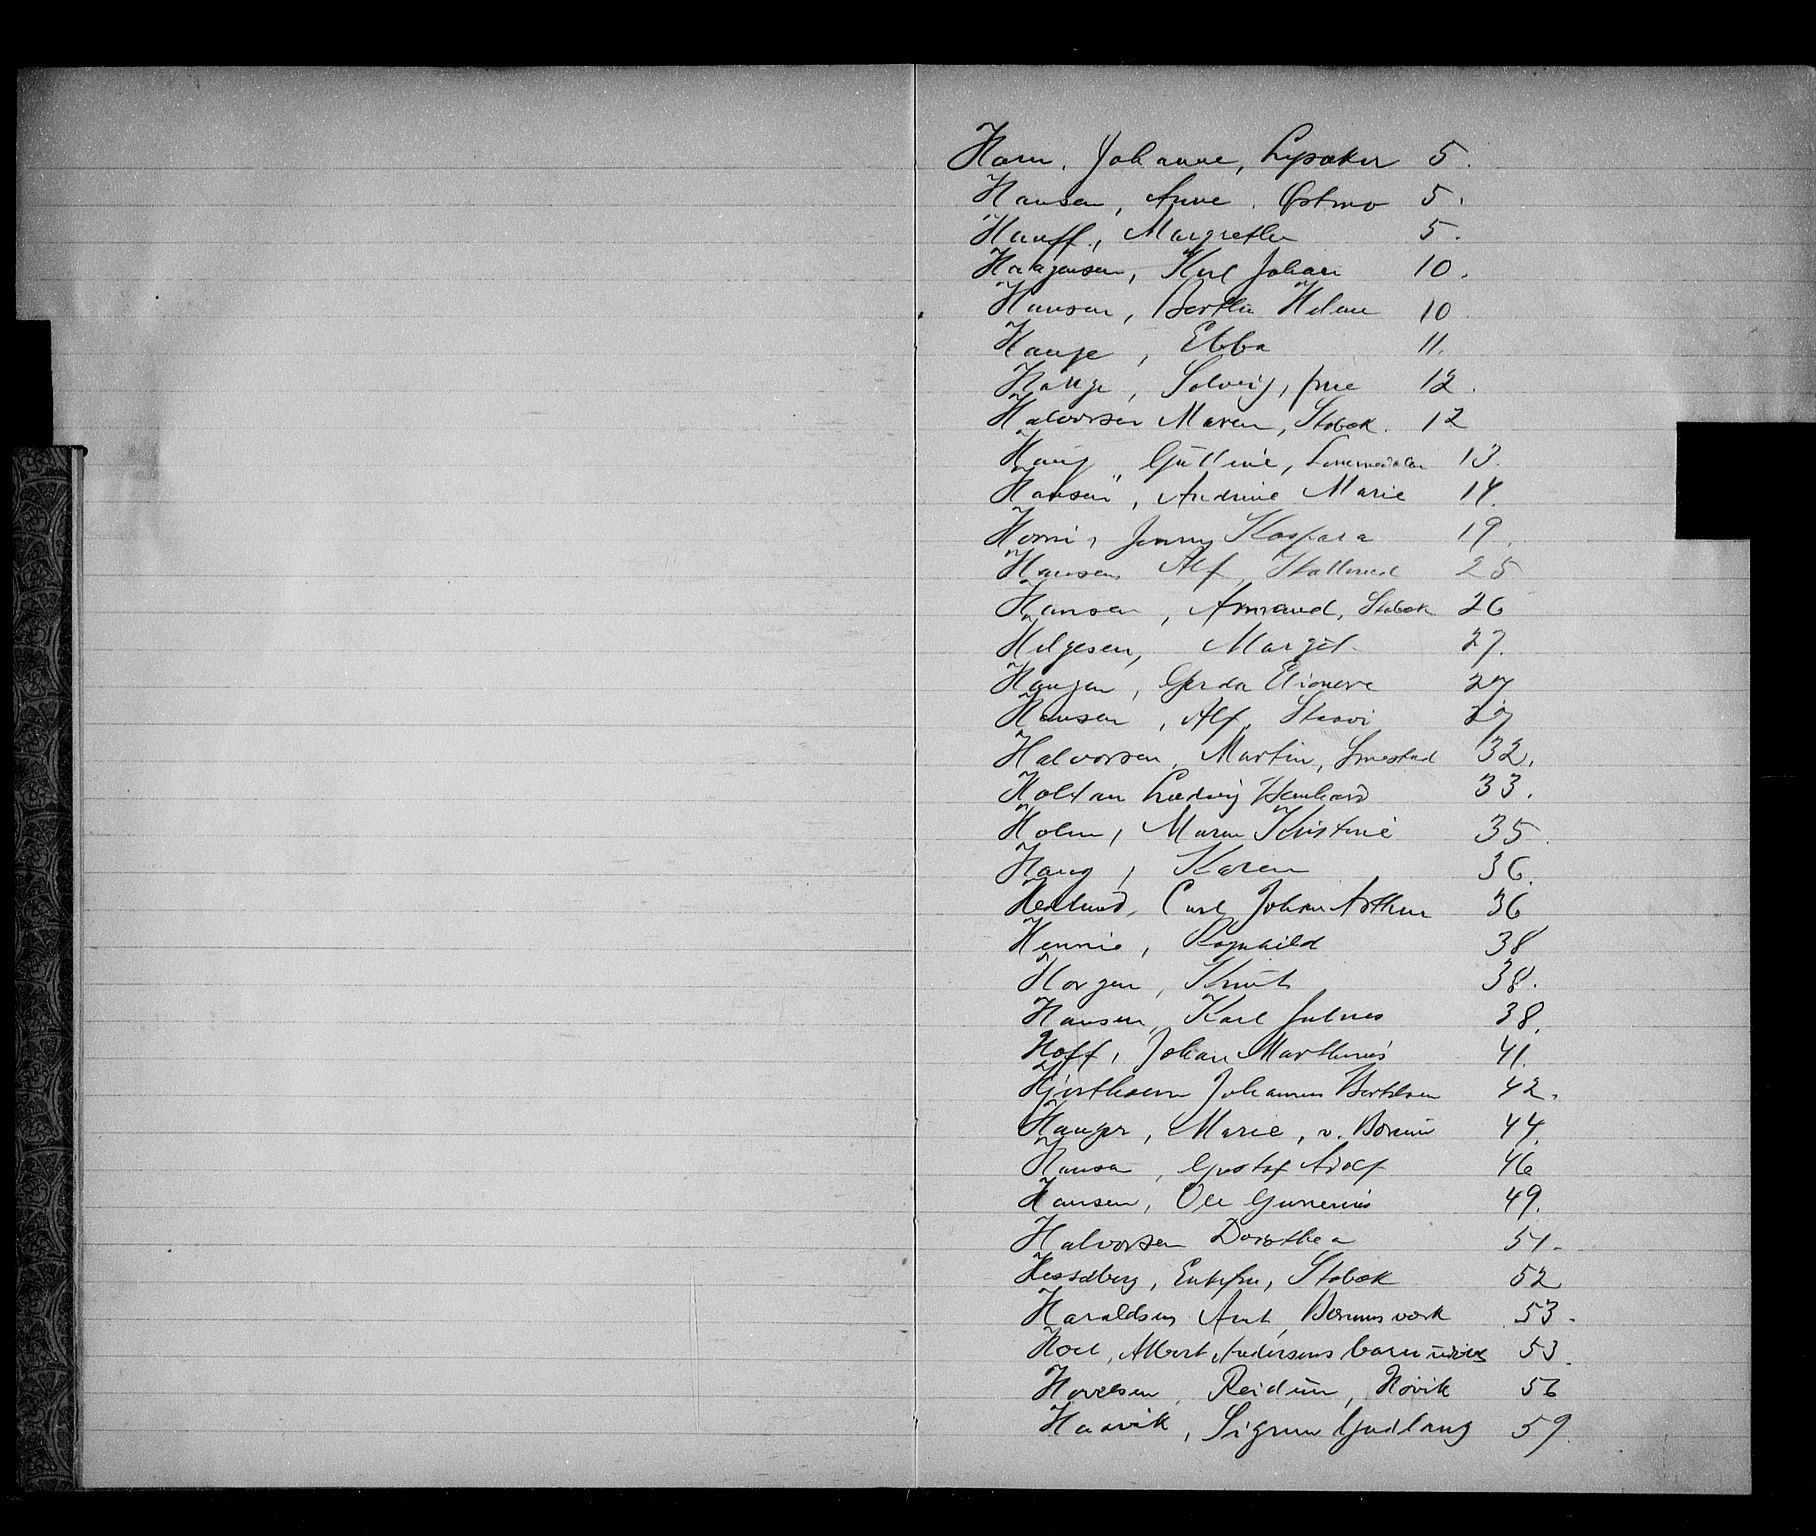 Horn, Johanne, Lysaker 5.
Hansen, Anne. Østmo 5.
Hauff, Margrethe 5.
Haagensen, Karl Johan 10.
Hansen, Bertha Helene 10
Hauge, Ebba 11.
Hauge, Solveig, frue 12.
Halvorsen Maren, Stabæk. 12
Haug, Gulline, Lommedalen 13.
Hansen, Andrine Marie 14.
Horni, Jenny Kaspara 19.
Hansen Alf, Skallerud 25
Hansen, Amand, Stabæk 26
Helgesen, Margit 27.
Haugen, Gerda Elionore 27
Hansen, Alf, Staavi 27
Halvorsen, Martin, Smestad 32.
Holtan Ludvig Henhard 33.
Holm, Maren Kristine 35.
Haug, Karen 36.
Hedlund, Carl Johan Arthur 36
Hennie, Ragnhild 38
Horgen, Knut 38.
Hansen, Karl Julius 38.
Hoff, Johan Marthinus 41.
Hjorthaun Johannes Bertelsen 42.
Hauger, Marie, v. Bærum 44.
Hansen, Gustaf Adolf 46
Hansen, Ole Gunerius 49.
Halvorsen Dorothea 51.
Hesselberg, Enkefru, Stabæk 52
Haraldsen Arnt, Bærums værk 53.
Hoel, Albert Andersens barn 53.
Hovelsen, Reidun, Høvik 56
Haavik, Sigrun Gudlaug 59.